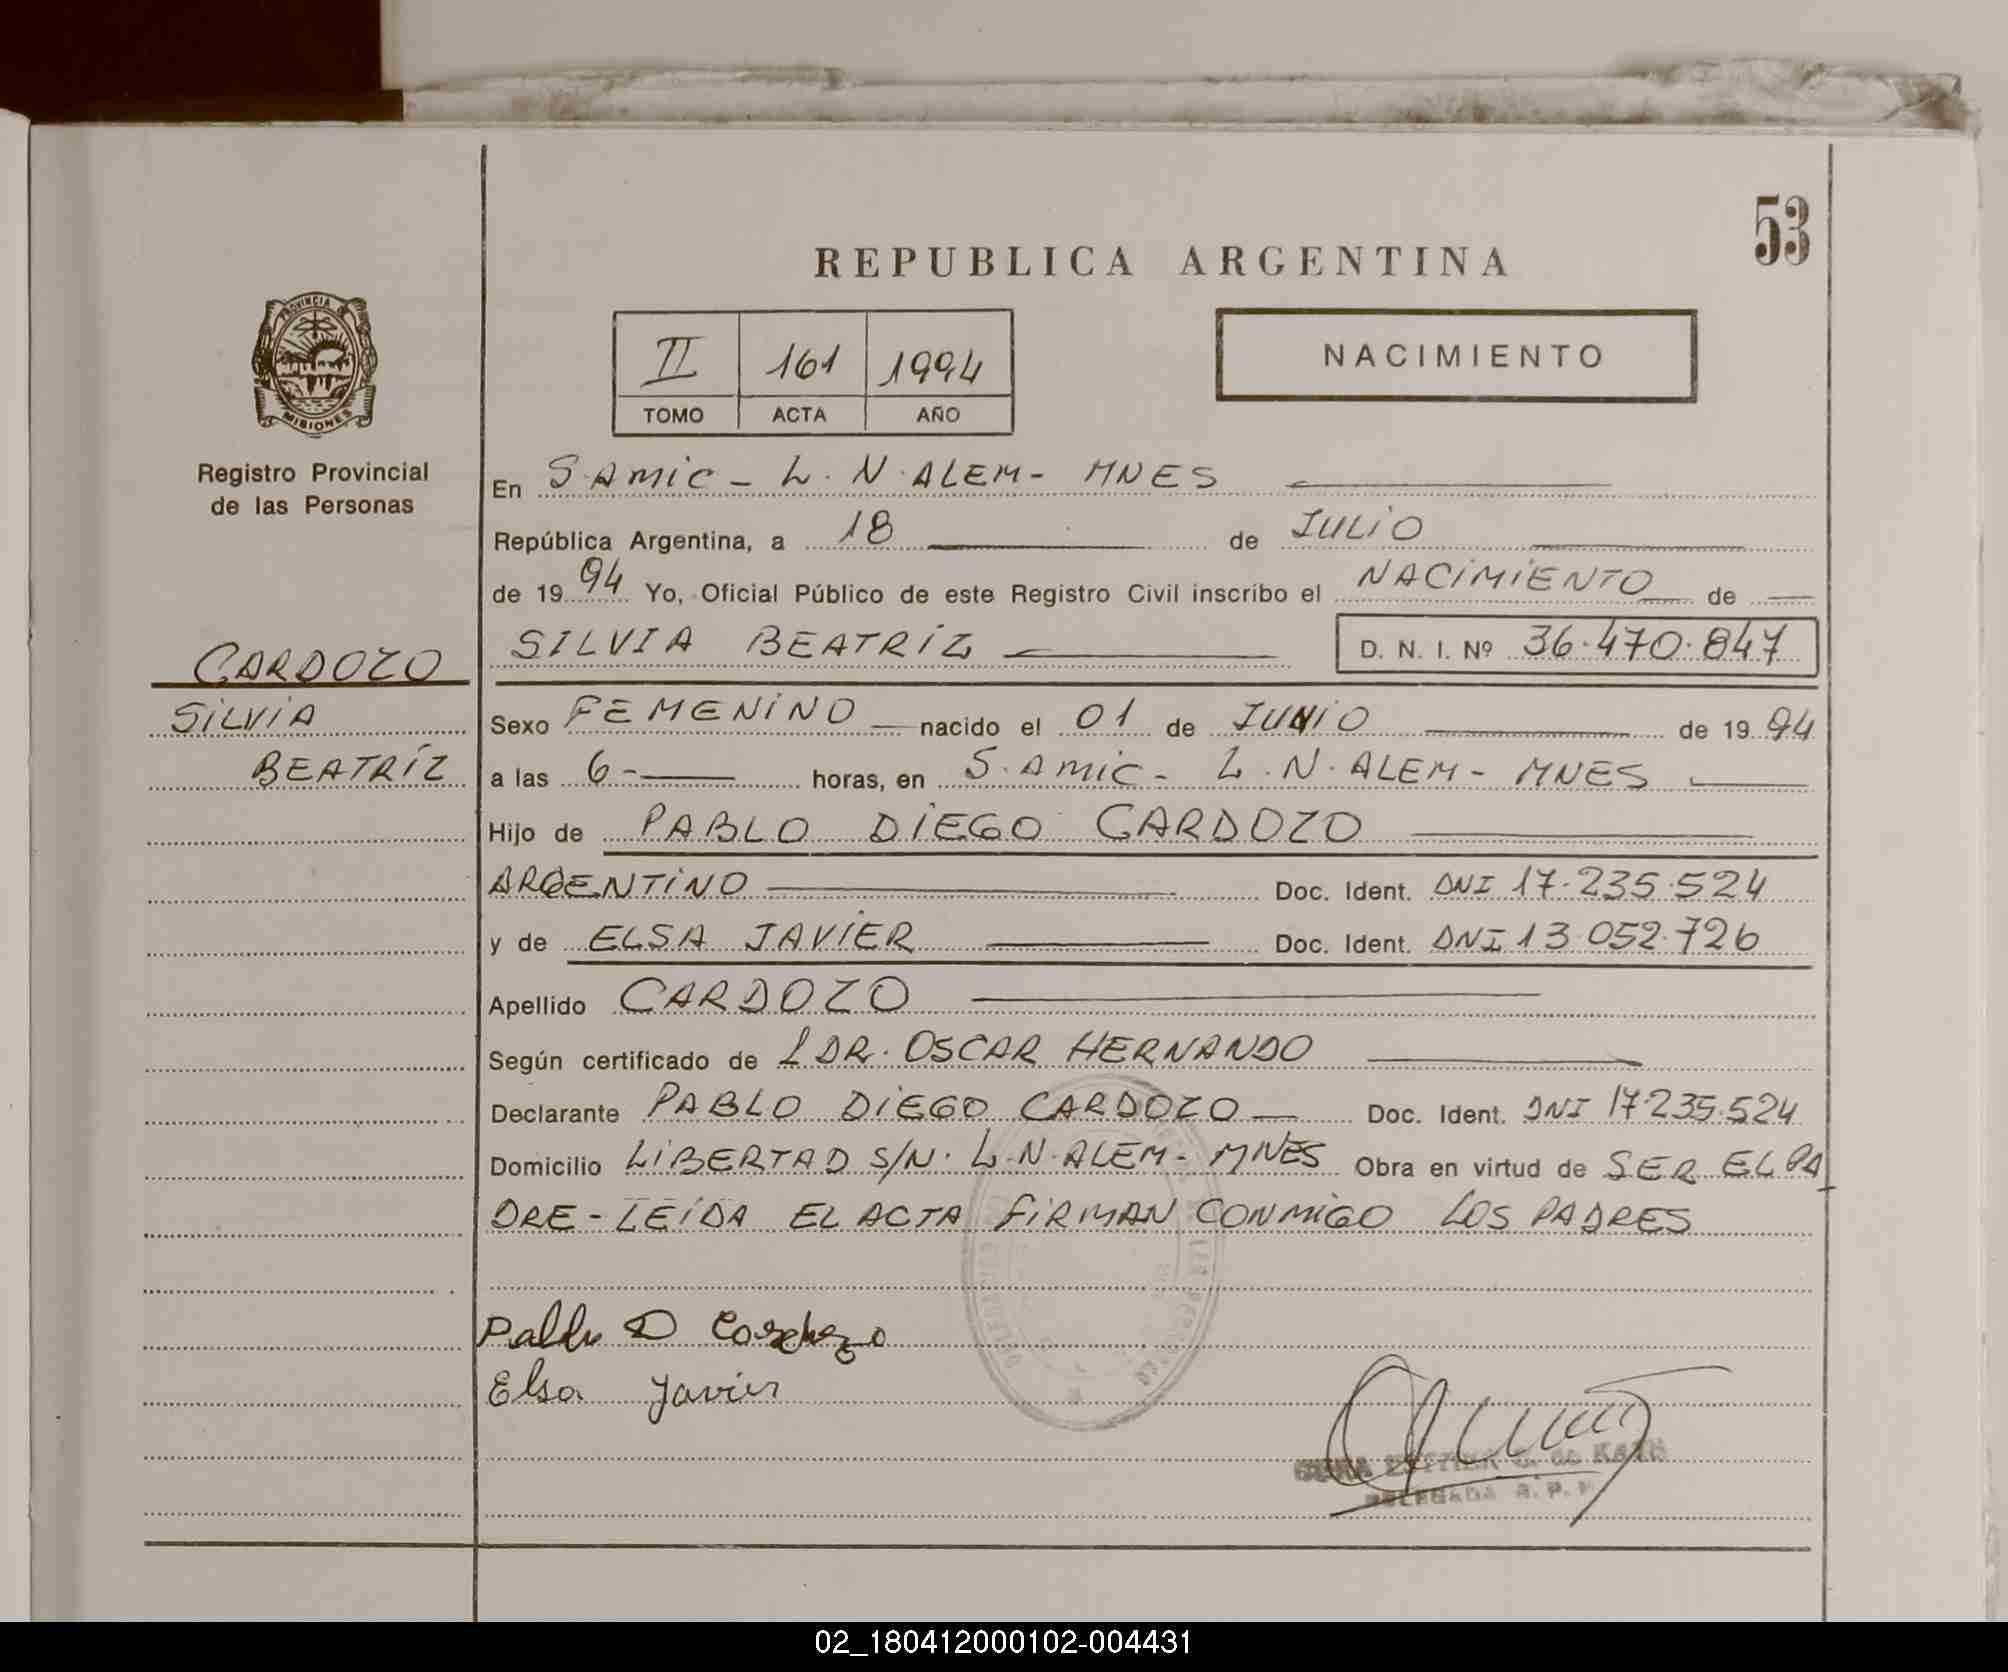 53
REPUBLICA ARGENTINA
PROVINCIA DE
MISIONES
II 161 1994
TOMO ACTA AÑO
NACIMIENTO
Registro Provincial
de las Personas
En SAMIC - L. N. ALEM - MNES
República Argentina, a 18 de JULIO
de 1994 Yo, Oficial Público de este Registro Civil inscribo el NACIMIENTO de
SILVIA BEATRIZ D. N. I. Nº 36.470.847
CARDOZO
SILVIA
BEATRIZ
Sexo FEMENINO nacido el 01 de JUNIO de 1994
a las 6- horas, en S.AMIC - L. N. ALEM - MNES
Hijo de PABLO DIEGO CARDOZO
ARGENTINO Doc. Ident. DNI 17.235.524
y de ELSA JAVIER Doc. Ident. DNI 13.052.726
Apellido CARDOZO
Según certificado de DR. OSCAR HERNANDO
Declarante PABLO DIEGO CARDOZO Doc. Ident. DNI 17.235.524
Domicilio LIBERTAD S/N. L.N. ALEM - MNES Obra en virtud de SER EL PA
DRE - LEIDA EL ACTA FIRMAN CONMIGO LOS PADRES
Pablo D Cardozo
Elsa Javier
DELEGADA R. P. P.
02_180412000102-004431